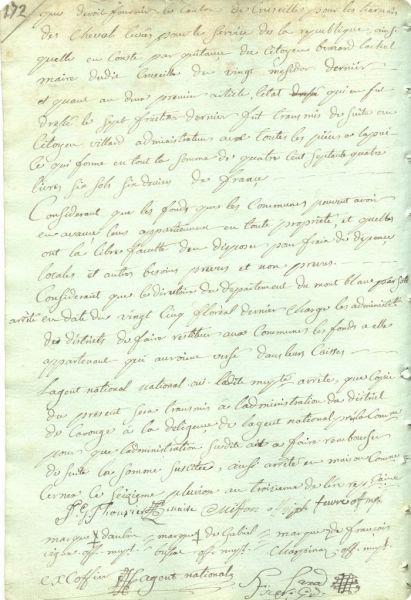 172/ que devoit fournir le canton de Cruseilles pour les harnais
des Cheval levés pour le service de la republique, ainsi
quelle en Conste par quittance du Citoyen bernard
maire dudit Cruseille du vingt messidor dernier
et quant aux deux premier article, l'etat qui en fut
dressé le sept fructidor dernier fut transmis de suite au
Citoyen villard administrateur avec toutes les pieces a l'appui
Ce qui forme en tout la somme de quatre Cent septante quatre
livres six sols six deniers de france
Considerant que les fonds que les Communes peuvent avoir
en caisse leurs appartiennent en toute propriété, et quelles
ont la libre faculté d'en disposer pour frais de depense
locales et autres besoins prevus et non prevus
Considerant que le directoire du departement du mont blanc par son
arrêté en date du vingt Cinq floreal dernier charge les administrateurs
des districts de faire restituer aux Communes les fonds a elle
appartenant qui auroient versé dans leurs Caisses
Lagent national national oui ladite arrête, que Copie
du present sera transmis a l'administration du district
de Carouge a la diligence de lagent national
pour que l'administration susdite ait a faire rembourser
de suite la somme susdite, ainsi arrêté en maison Commune
Cernex ce seizieme pluviose an troisieme de l'ere rep.
maire off. m.
marque † marque † de Gabriel marque de françois
off. mp.l off. mp.l off. mp.l
lagent national